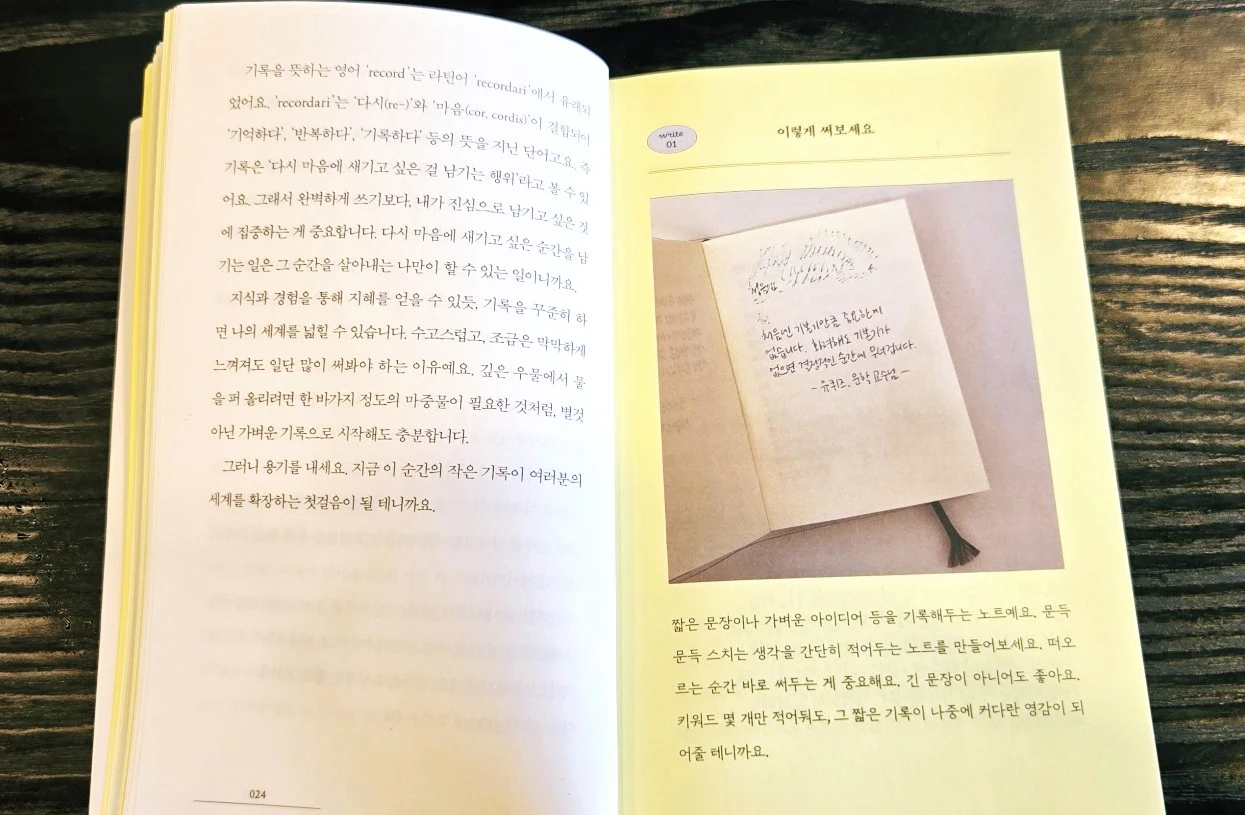 기록을 뜻하는 영어 ‘record’는 라틴어 ‘recordari’에서 유래되
었어요. ‘recordari’는 ‘다시(re-)’와 ‘마음(cor, cordis)’이 결합되어
‘기억하다’, ‘반복하다’, ‘기록하다’ 등의 뜻을 지닌 단어고요. 즉
기록은 ‘다시 마음에 새기고 싶은 걸 남기는 행위’라고 볼 수 있
어요. 그래서 완벽하게 쓰기보다, 내가 진심으로 남기고 싶은 것
에 집중하는 게 중요합니다. 다시 마음에 새기고 싶은 순간을 남
기는 일은 그 순간을 살아내는 나만이 할 수 있는 일이니까요.
지식과 경험을 통해 지혜를 얻을 수 있듯, 기록을 꾸준히 하
면 나의 세계를 넓힐 수 있습니다. 수고스럽고, 조금은 막막하게
느껴져도 일단 많이 써봐야 하는 이유예요. 깊은 우물에서 물
을 퍼 올리려면 한 바가지 정도의 마중물이 필요한 것처럼, 별것
아닌 가벼운 기록으로 시작해도 충분합니다.
그러니 용기를 내세요. 지금 이 순간의 작은 기록이 여러분의
세계를 확장하는 첫걸음이 될 테니까요.
024
write
01
이렇게 써보세요
기본기만큼 중요한게
없습니다. 화려해도 기본기가
없으면 결정적인 순간에 무너집니다.
- 유퀴즈, 문학 교수님 -
짧은 문장이나 가벼운 아이디어 등을 기록해두는 노트예요. 문득
문득 스치는 생각을 간단히 적어두는 노트를 만들어보세요. 떠오
르는 순간 바로 써두는 게 중요해요. 긴 문장이 아니어도 좋아요.
키워드 몇 개만 적어둬도, 그 짧은 기록이 나중에 커다란 영감이 되
어줄 테니까요.